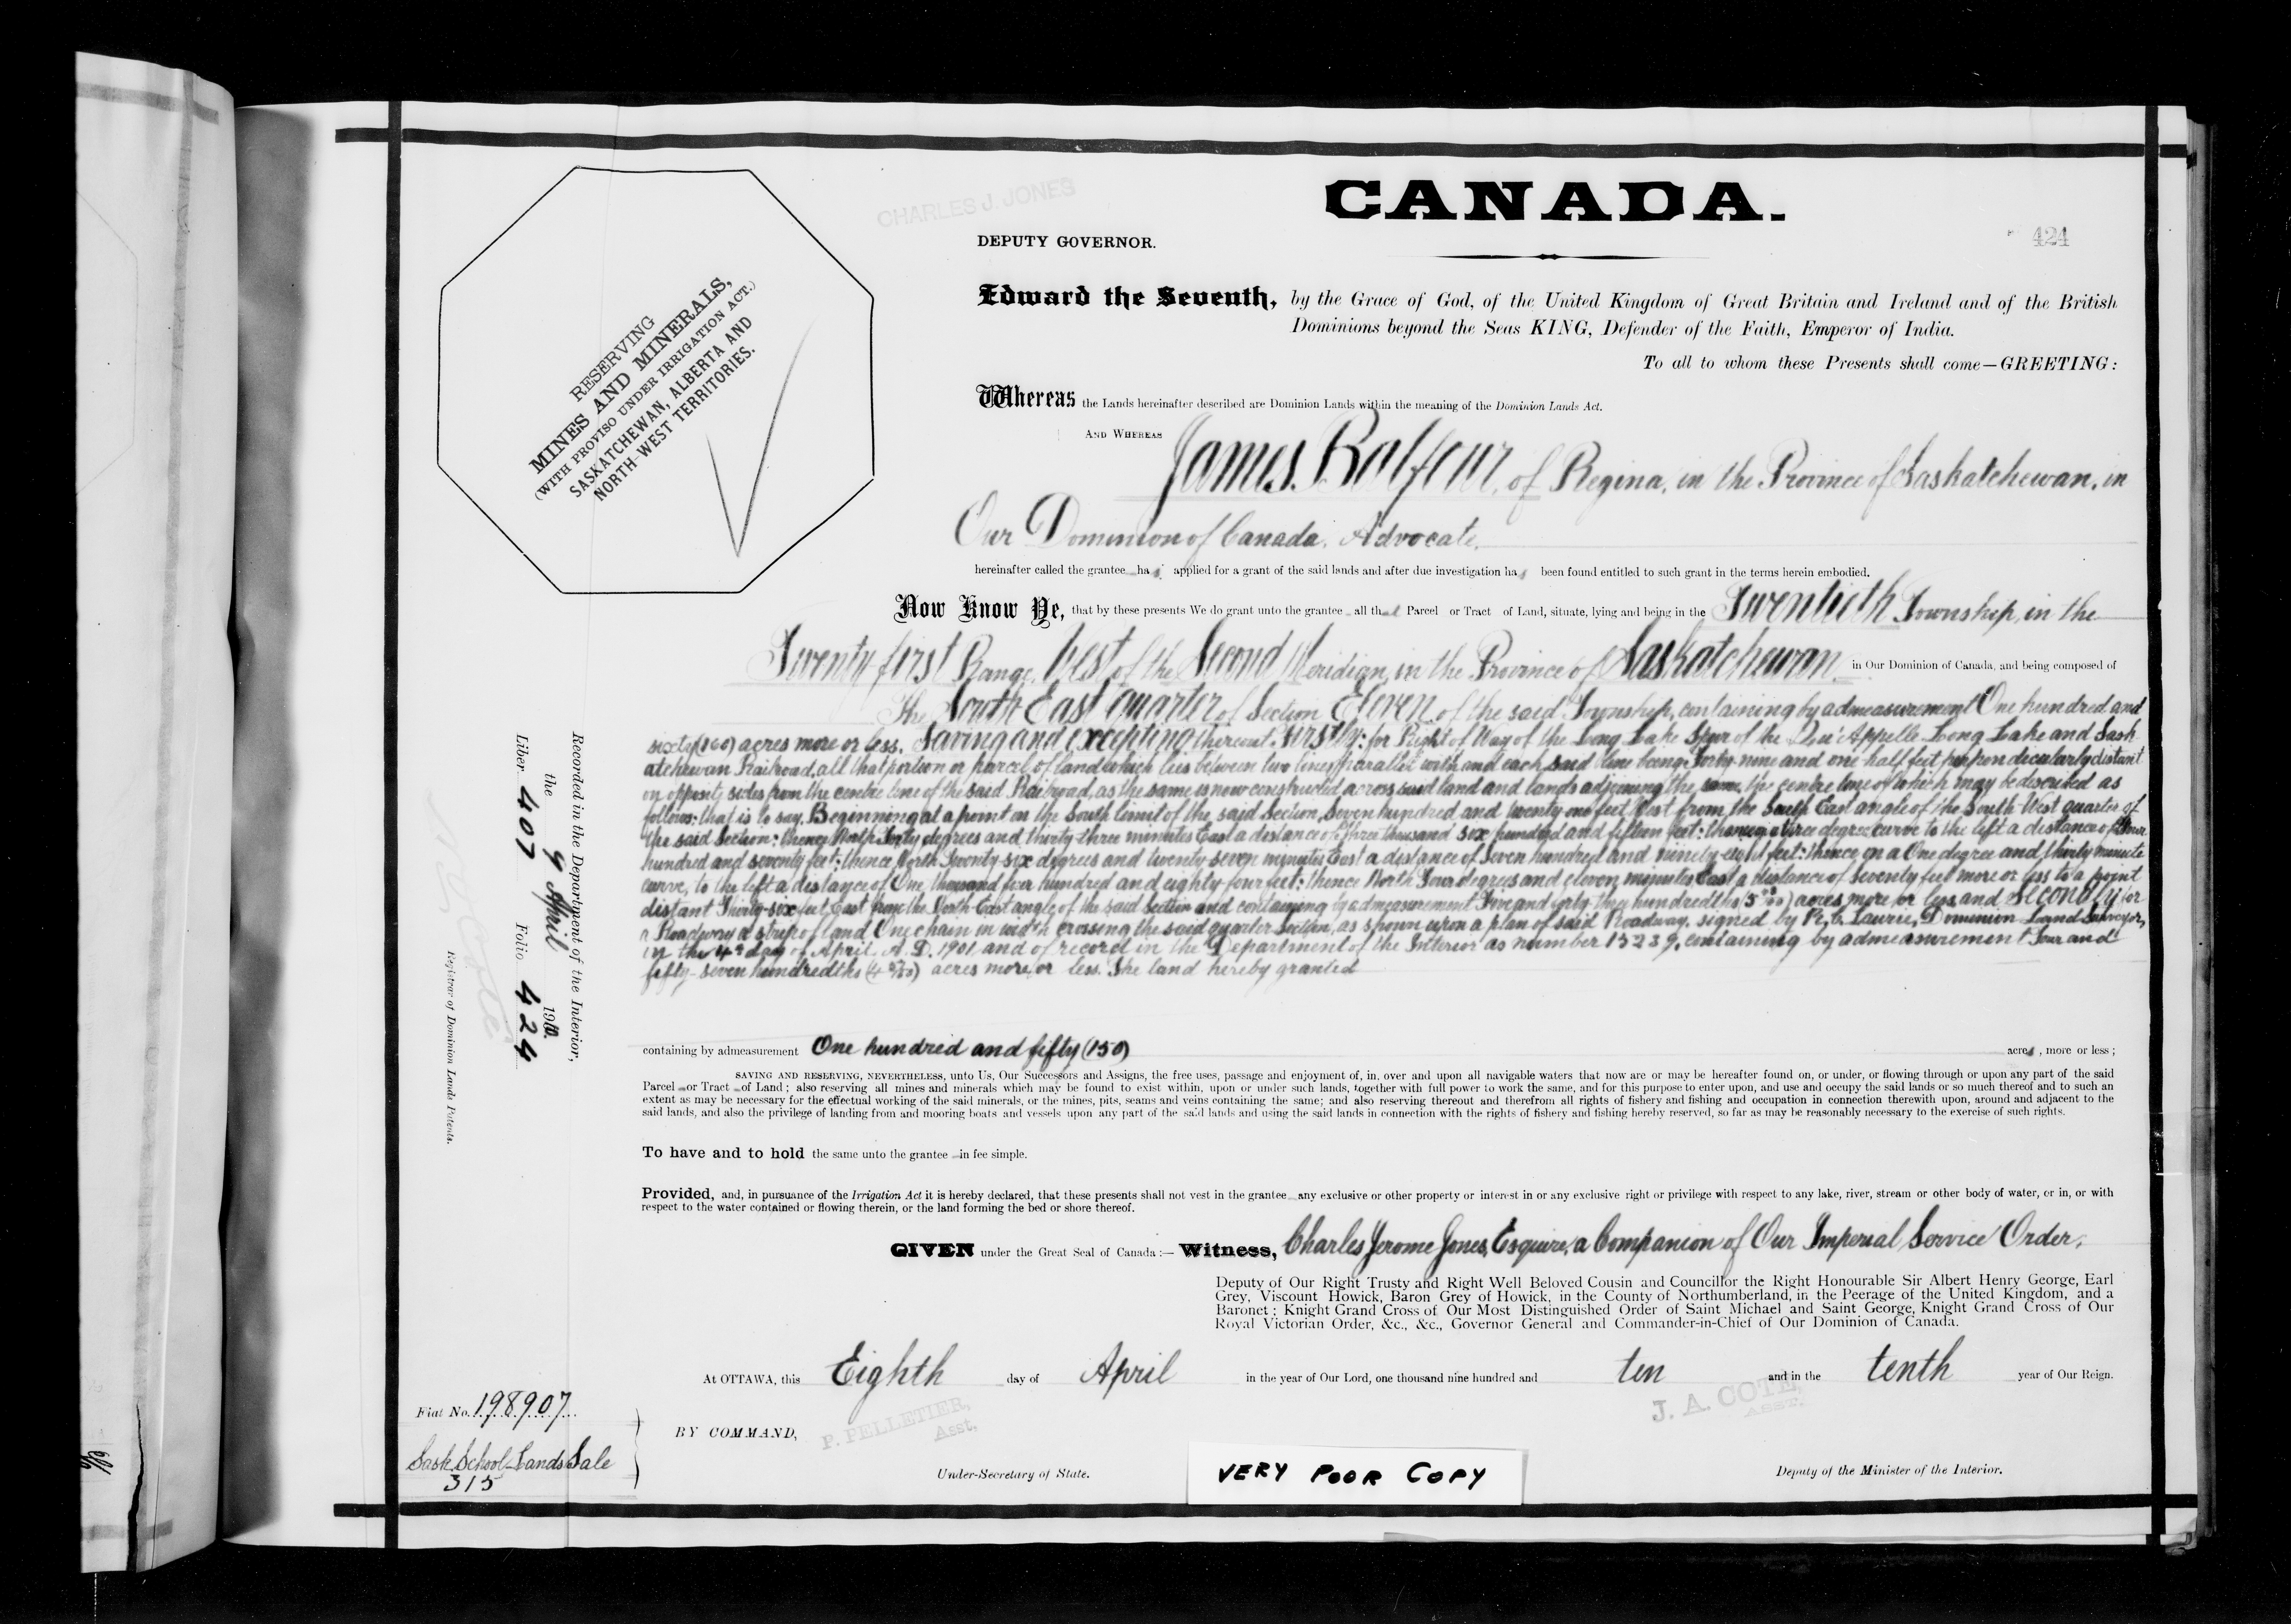 CHARLES J. JONES
CANADA.
DEPUTY GOVERNOR.
424
Edward the Seventh, by the Grace of God, of the United Kingdom of Great Britain and Ireland and of the British
Dominions beyond the Seas KING, Defender of the Faith, Emperor of India.
To all to whom these Presents shall come—GREETING:
RESERVING
MINES AND MINERALS,
(WITH PROVISO UNDER IRRIGATION ACT.)
SASKATCHEWAN, ALBERTA AND
NORTH-WEST TERRITORIES.
Whereas the Lands hereinafter described are Dominion Lands within the meaning of the Dominion Lands Act.
AND WHEREAS James Balfour, of Regina, in the Province of Saskatchewan, in
Our Dominion of Canada, Advocate,
hereinafter called the grantee has applied for a grant of the said lands and after due investigation has been found entitled to such grant in the terms herein embodied.
Now Know Ye, that by these presents We do grant unto the grantee all that Parcel or Tract of Land, situate, lying and being in the Twentieth Township, in the
Twenty-first Range, West of the Second Meridian, in the Province of Saskatchewan, in Our Dominion of Canada, and being composed of
The South East quarter of Section Eleven, of the said Township, containing by admeasurement One hundred and
sixty (160) acres more or less. Saving and excepting thereout, Firstly: for Right of Way of the Long Lake Spur of the Qu'Appelle Long Lake and Sask-
atchewan Railroad, all that portion or parcel of land which lies between two lines parallel with and each said line being Forty-nine and one-half feet perpendicularly distant
on opposite sides from the centre line of the said Railroad, as the same is now constructed across said land and lands adjoining the same, the centre line of which may be described as
follows: that is to say, Beginning at a point on the South limit of the said Section, Seven hundred and twenty-one feet West from the South East angle of the South West quarter of
the said Section: thence North degrees and thirty-three minutes East a distance of Three thousand six hundred and fifteen feet: thence on a Three degree curve to the left a distance of Four
hundred and seventy feet: thence North Twenty-six degrees and twenty-seven minutes East a distance of Seven hundred and ninety-eight feet: thence on a One degree and thirty minute
curve, to the left a distance of One thousand four hundred and eighty four feet: thence North Four degrees and eleven minutes East a distance of seventy feet more or less to a point
distant Thirty-six feet East from the North-East angle of the said Section and containing by admeasurement Five and forty three hundredths acres more or less and Secondly for
a Roadway a strip of land One chain in width crossing the said quarter Section, as shown upon a plan of said Roadway, signed by R. C. Laurie, Dominion Land Surveyor,
on the 4th day of April, A. D. 1901 and of record in the Department of the Interior as number 15239, containing by admeasurement Four and
fifty-seven hundredths acres more or less. The land hereby granted
containing by admeasurement One hundred and fifty (150) acres, more or less;
SAVING AND RESERVING, NEVERTHELESS, unto Us, Our Successors and Assigns, the free uses, passage and enjoyment of, in, over and upon all navigable waters that now are or may be hereafter found on, or under, or flowing through or upon any part of the said
Parcel or Tract of Land; also reserving all mines and minerals which may be found to exist within, upon or under such lands, together with full power to work the same, and for this purpose to enter upon, and use and occupy the said lands or so much thereof and to such an
extent as may be necessary for the effectual working of the said minerals, or the mines, pits, seams and veins containing the same; and also reserving thereout and therefrom all rights of fishery and fishing and occupation in connection therewith upon, around and adjacent to the
said lands, and also the privilege of landing from and mooring boats and vessels upon any part of the said lands and using the said lands in connection with the rights of fishery and fishing hereby reserved, so far as may be reasonably necessary to the exercise of such rights.
To have and to hold the same unto the grantee in fee simple.
Provided, and, in pursuance of the Irrigation Act it is hereby declared, that these presents shall not vest in the grantee any exclusive or other property or interest in or any exclusive right or privilege with respect to any lake, river, stream or other body of water, or in, or with
respect to the water contained or flowing therein, or the land forming the bed or shore thereof.
GIVEN under the Great Seal of Canada:— Witness, Charles Jerome Jones, Esquire, a Companion of Our Imperial Service Order,
Deputy of Our Right Trusty and Right Well Beloved Cousin and Councillor the Right Honourable Sir Albert Henry George, Earl
Grey, Viscount Howick, Baron Grey of Howick, in the County of Northumberland, in the Peerage of the United Kingdom, and a
Baronet; Knight Grand Cross of Our Most Distinguished Order of Saint Michael and Saint George, Knight Grand Cross of Our
Royal Victorian Order, &c., &c., Governor General and Commander-in-Chief of Our Dominion of Canada.
At OTTAWA, this Eighth day of April in the year of Our Lord, one thousand nine hundred and ten and in the tenth year of Our Reign.
BY COMMAND,
P. PELLETIER,
Asst,
J. A. COTE,
ASST.
Under-Secretary of State.
Deputy of the Minister of the Interior.
VERY POOR COPY
Recorded in the Department of the Interior,
the 9 April 1910.
Liber 407 Folio 424
Registrar of Dominion Lands Patents.
Fiat No. 198907
Sask. School-Lands Sale
315